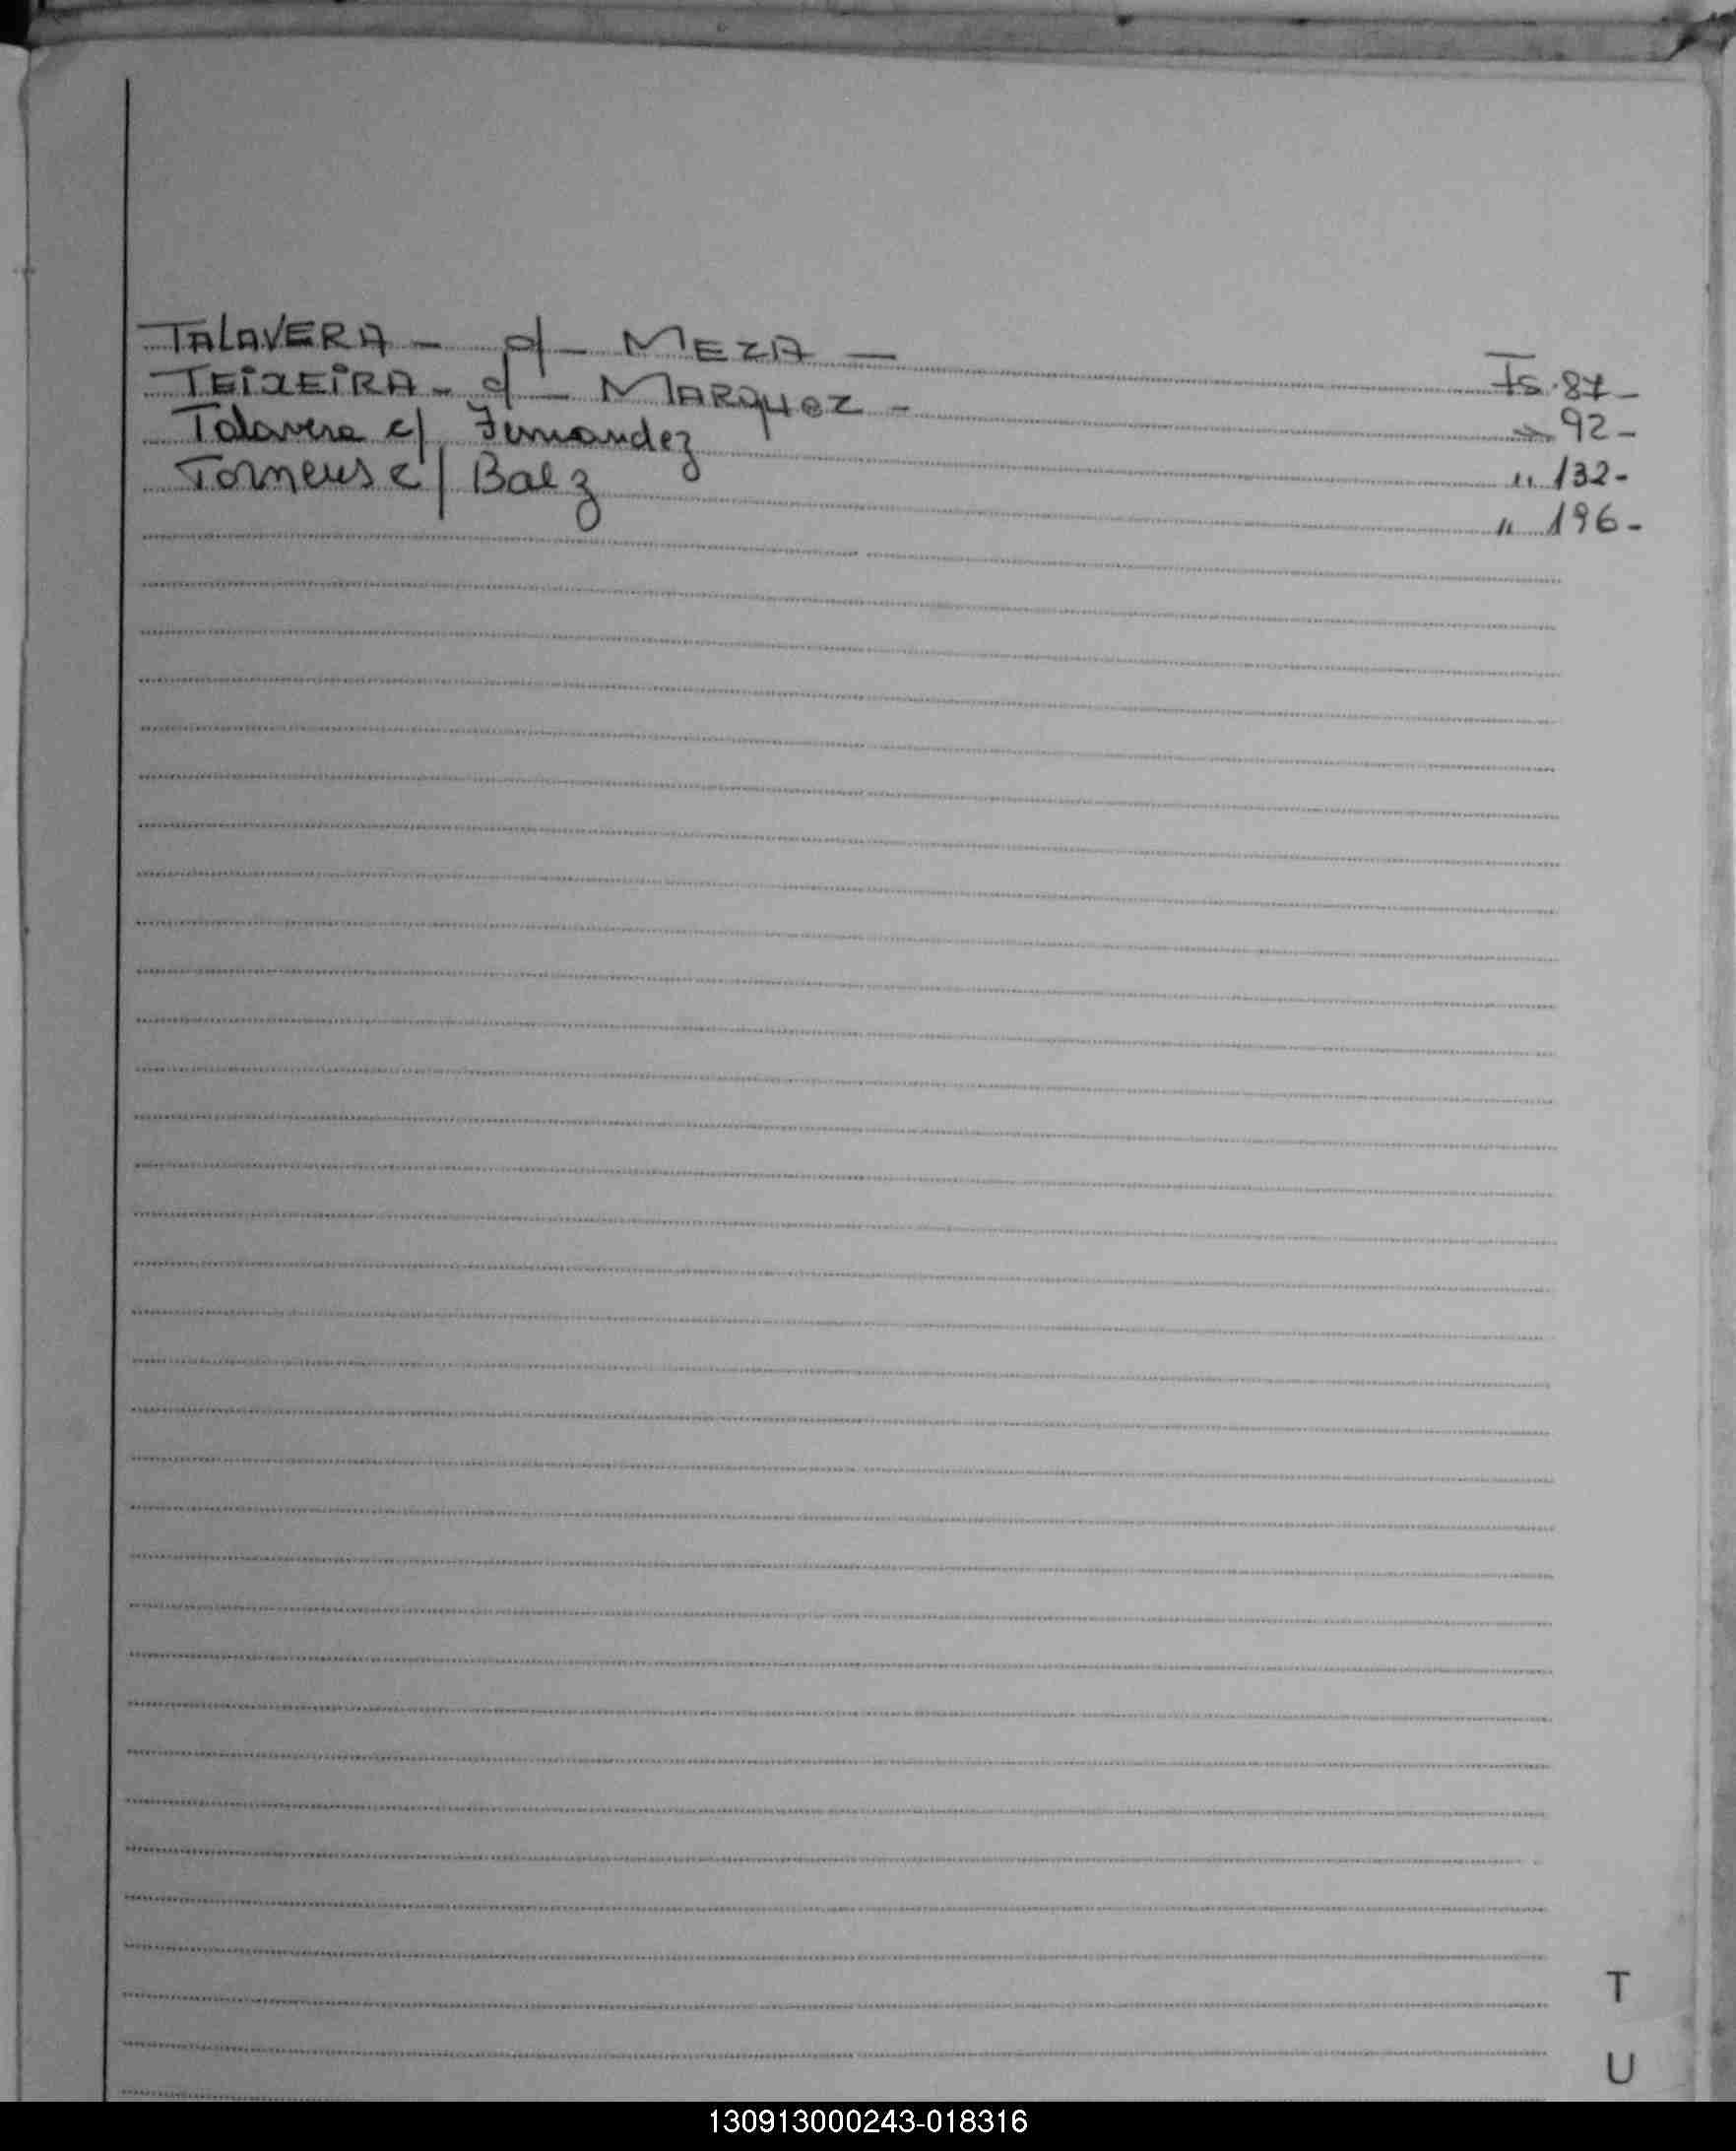 TALAVERA - c/ - MEZA - Fs. 87 -
TEiXEiRA - c/ - MARQUEZ - " 92 -
Talavera c/ Fernandez " 132 -
c/ Baez " 196 -
T
U
130913000243-018316